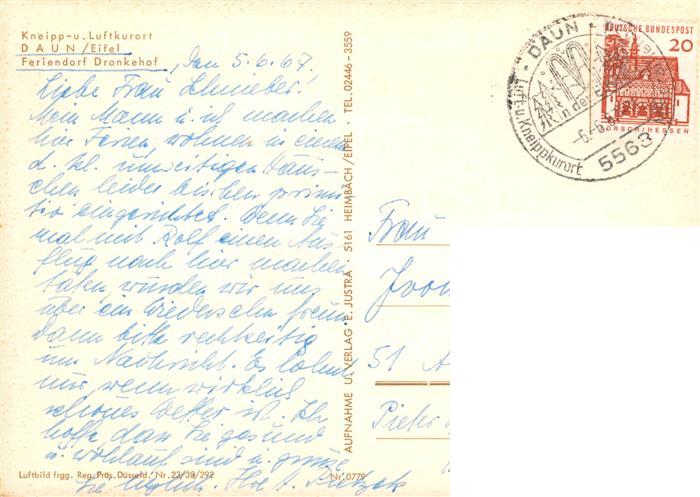 Kneipp-u. Luftkurort
DAUN/Eifel
Feriendorf Dronkehof
, den 5.6.67.
Liebe Frau
Mein Mann u. ich machen
hier Ferien, wohnen in einem
d. kl.
leider bisschen primi-
tiv eingerichtet. Wenn Sie
mal mit Rolf einen Aus-
flug nach hier machen
täten, würden wir uns
über ein Wiedersehn freuen
Dann bitte rechtzeitig
um Nachricht. Es lohnt
nur, wenn wirklich
schönes Wetter ist. Ich
hoffe, dass Sie gesund
u. wohlauf sind u. grüsse
Sie
Luftbild frgg. Reg. Präs. Düsseld. Nr. 23/38/292
Nr. 0779
AUFNAHME U. VERLAG E. JUSTRA · 5161 HEIMBACH/EIFEL · TEL. 02446-3559
DAUN
in der
Luft-u.Kneippkurort
5563
DEUTSCHE BUNDESPOST
20
LORSCH/HESSEN
Frau
51 A
Pieter